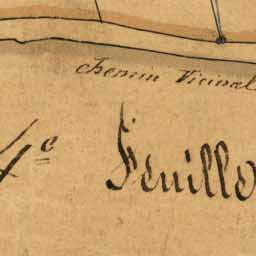 chemin Vicinal
4e Feuille